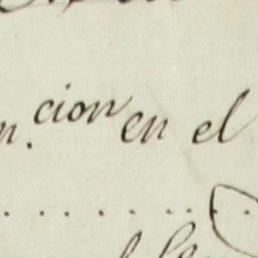 n.cion en el
. . . . . . . . .